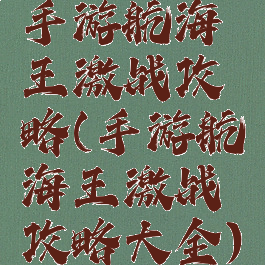 手游航海
王激战攻
略(手游航
海王激战
攻略大全)